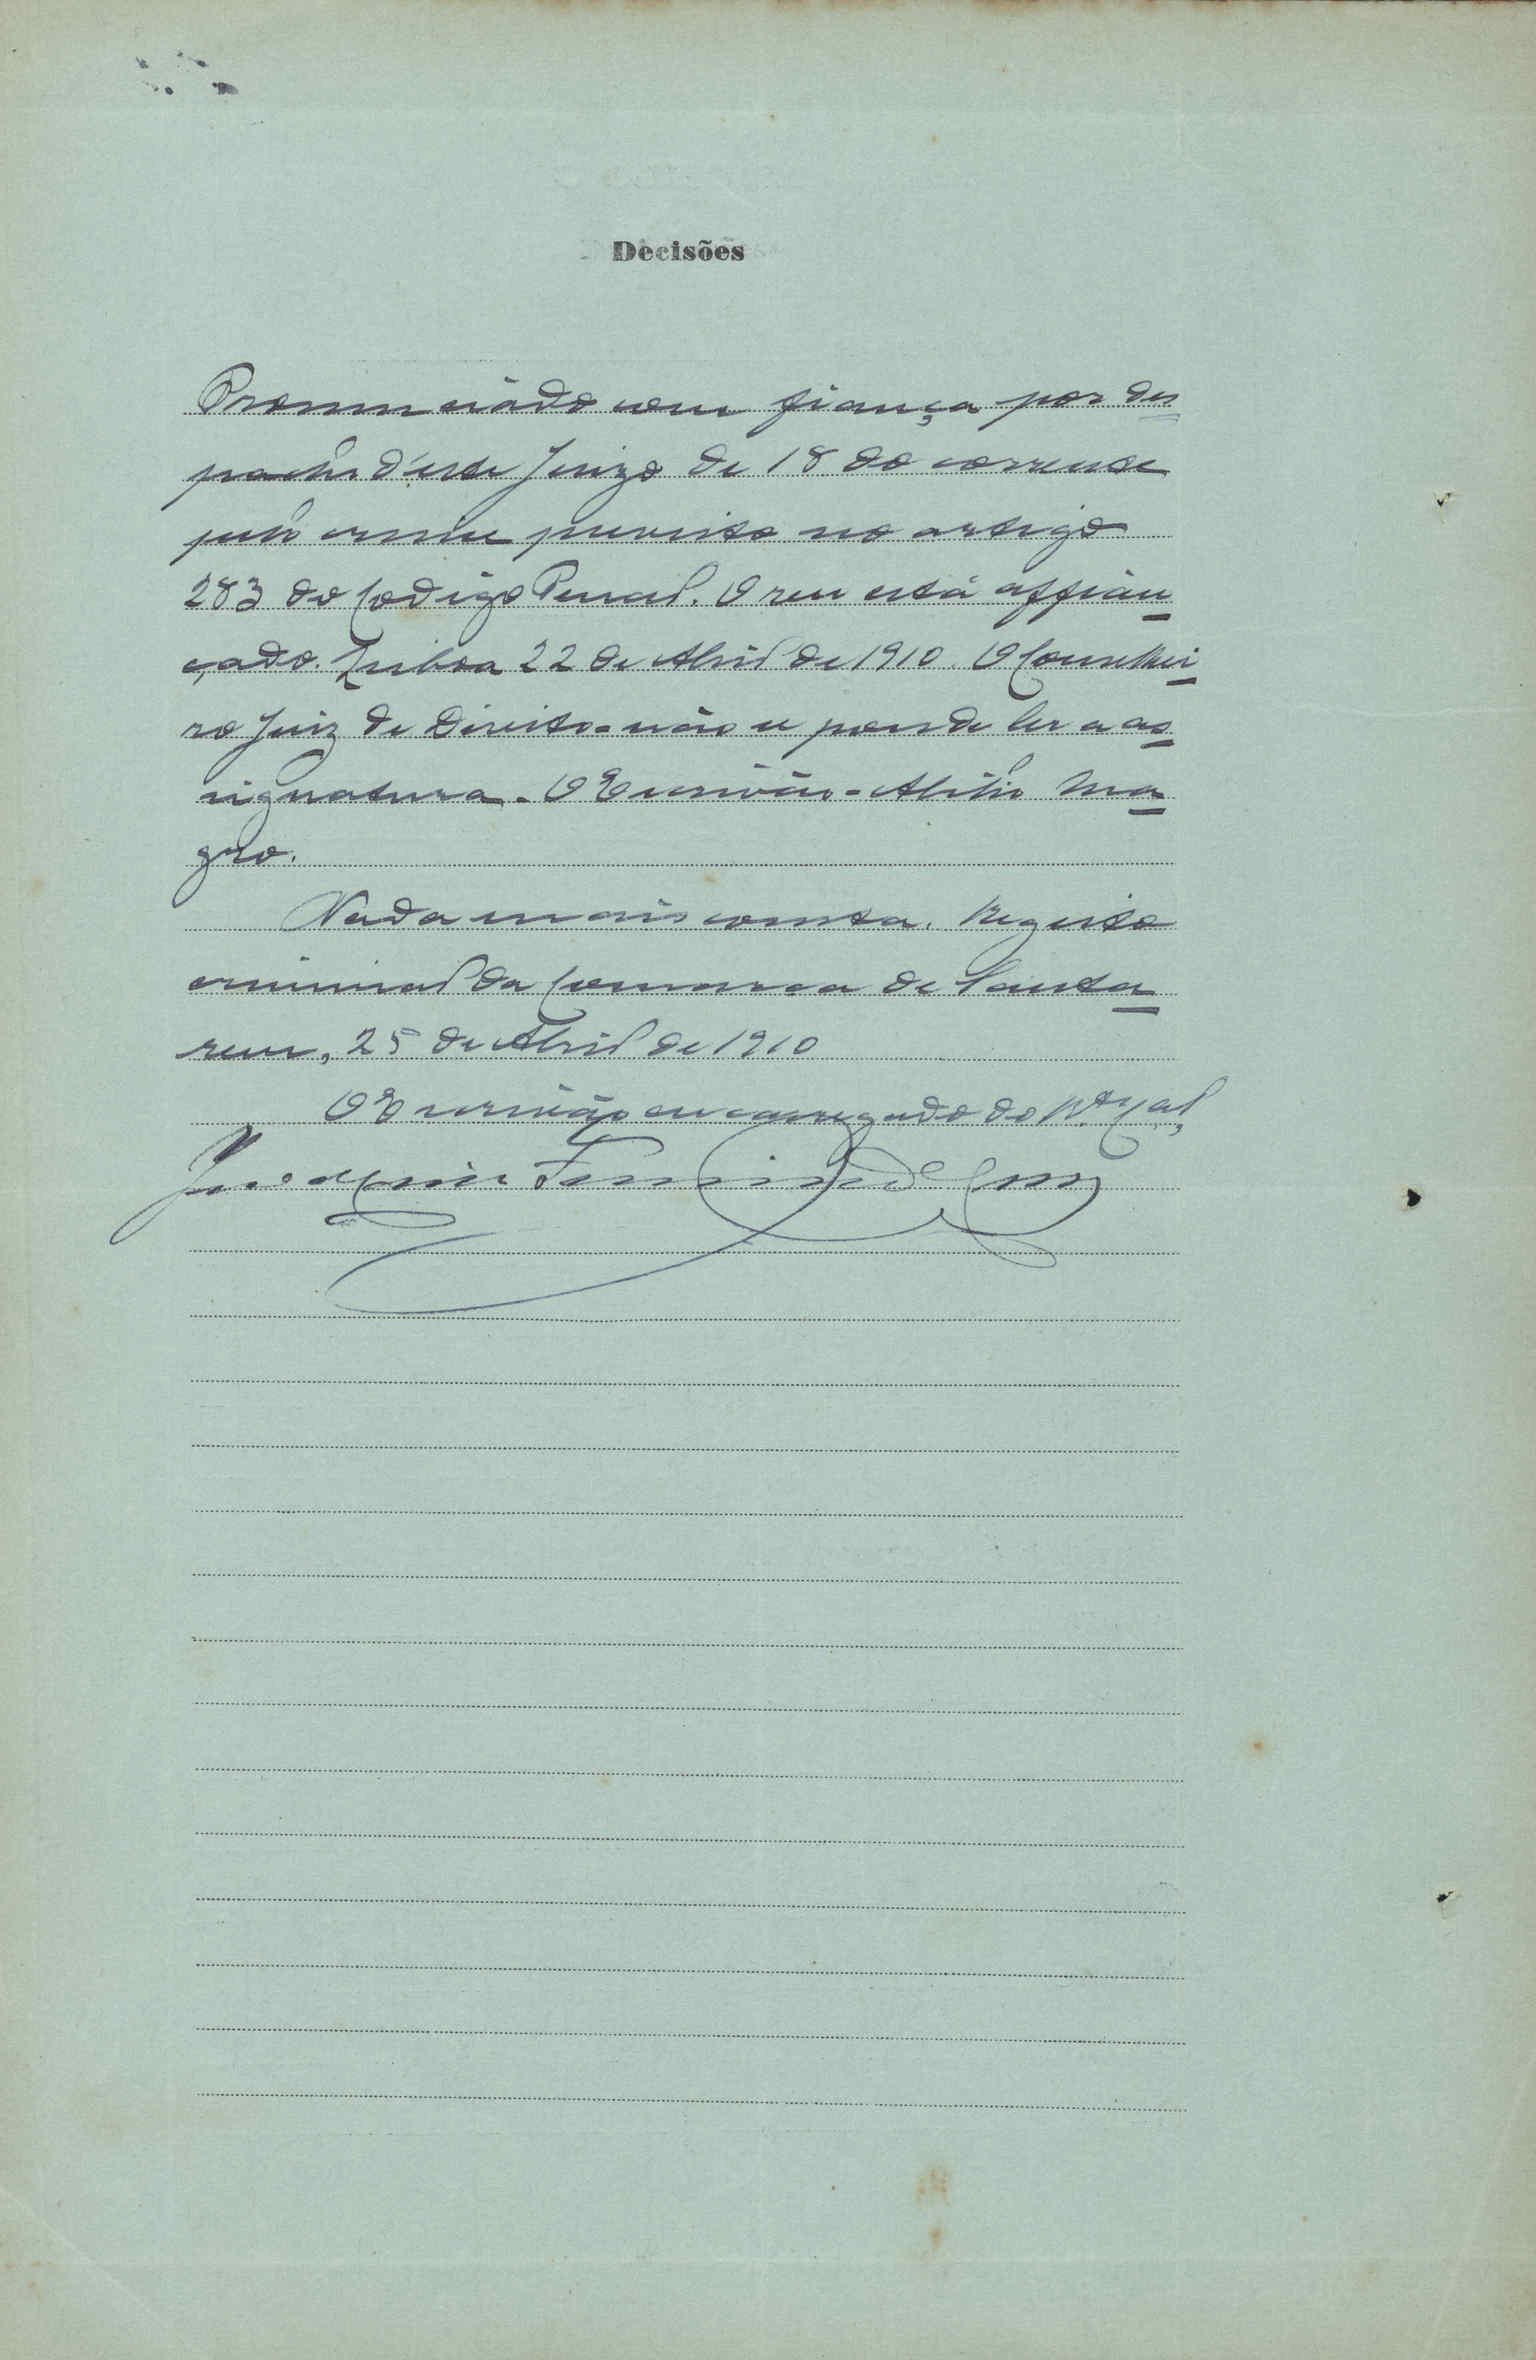 Decisões
Pronunciado com fiança por des
pacho d'este Juizo de 18 do corrente
pelo crime previsto no artigo
283 do Codigo Penal. O reu está affian
çado. Lisboa 22 de Abril de 1910. O Conselhei
ro Juiz de Direito - não se poude ler a as
signatura - O Escrivão - Abilio Ma
gro.
Nada mais consta. Registo
criminal da Comarca de Santa
rem, 25 de Abril de 1910
O Escrivão encarregado do